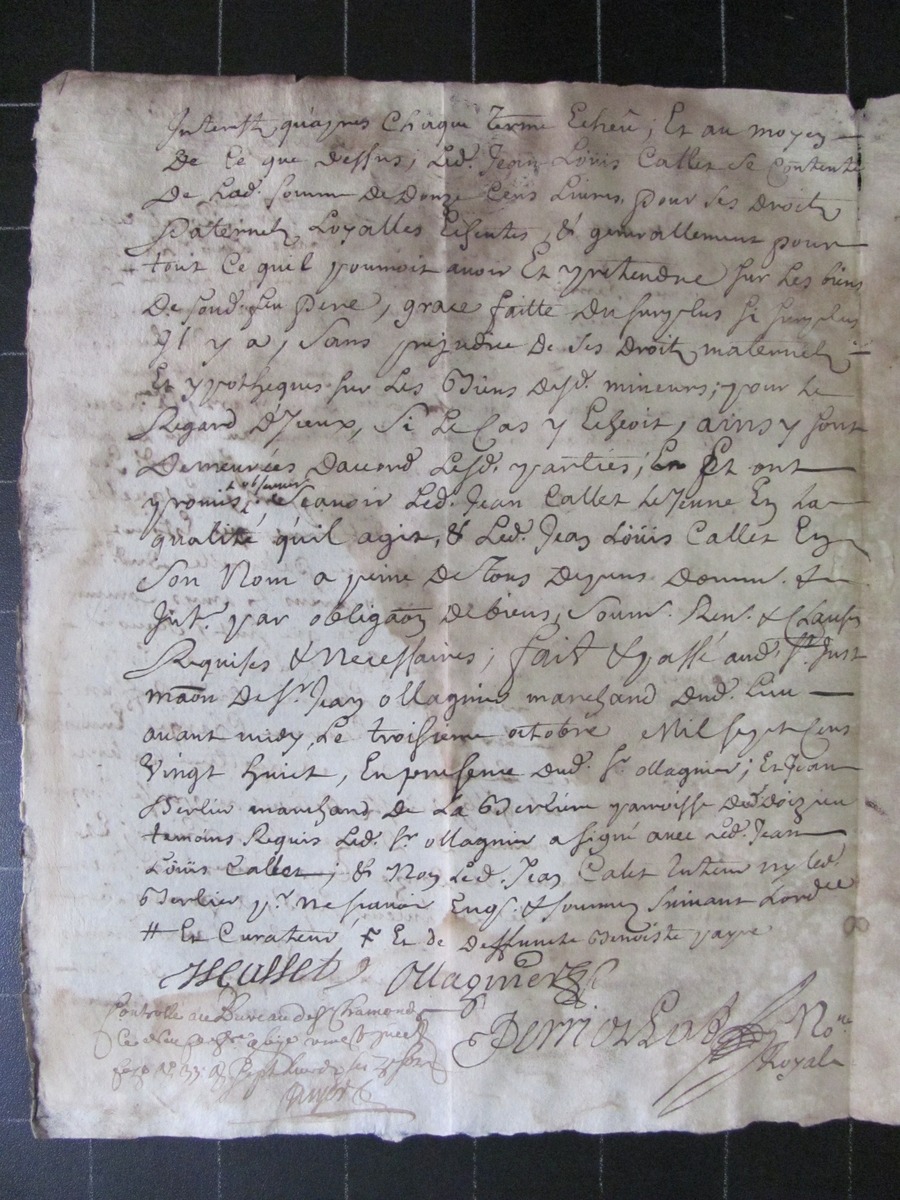 Interest qu'apres Chaque Terme Echeu; Et au moyen
De Ce que dessus; Led. Jean Loüis Callet se Contente
De Lad. somme De Douze Cens Livres pour ses Droits
Paternels, Loyalles Escheutes, & generallement pour
tout Ce quil pourroit avoir Et pretendre sur Les biens
De sond. feu Pere, grace faitte du surplus si surplus
y a, sans prejudice De ses Droits maternels
Et ypotheques sur Les Biens desd. mineurs; pour Le
Regard D'Jceux, si Le Cas y Escheoit, ainsy sont
Demeurées Daccord Lesd. parties; Et ont
promis d'observer sçavoir Led. Jean Callet Le Jeune En La
qualité quil agit, & Led. Jean Loüis Callet En
son Nom a peine De Tous Depens Domm. &
Int. par obligaon De biens, soum. Ren. & Clauses
Requises & Necessaires; fait & passé aud. St. Just
maon De Sr. Jean Ollagnier marchand Dud. Lieu
avant midy, Le troisieme octobre Mil sept Cens
Vingt huict, En presence Dud. Sr. Ollagnier; Et Jean
Berlier marchand De La Berliere parroisse De Doizieu
temoins Requis Led. Sr. ollagnier a signé avec Led. Jean
Loüis Callet; & Non Led. Jean Calet ny Led.
Berlier pr. ne sçavoir Enqs. & sommez suivant Lord.ce
# Et Curateur Et de Deffuncte Benoiste payre
JLCallet Ollagnier
Controllé au Bureau de St Chamond
No.re
Royal